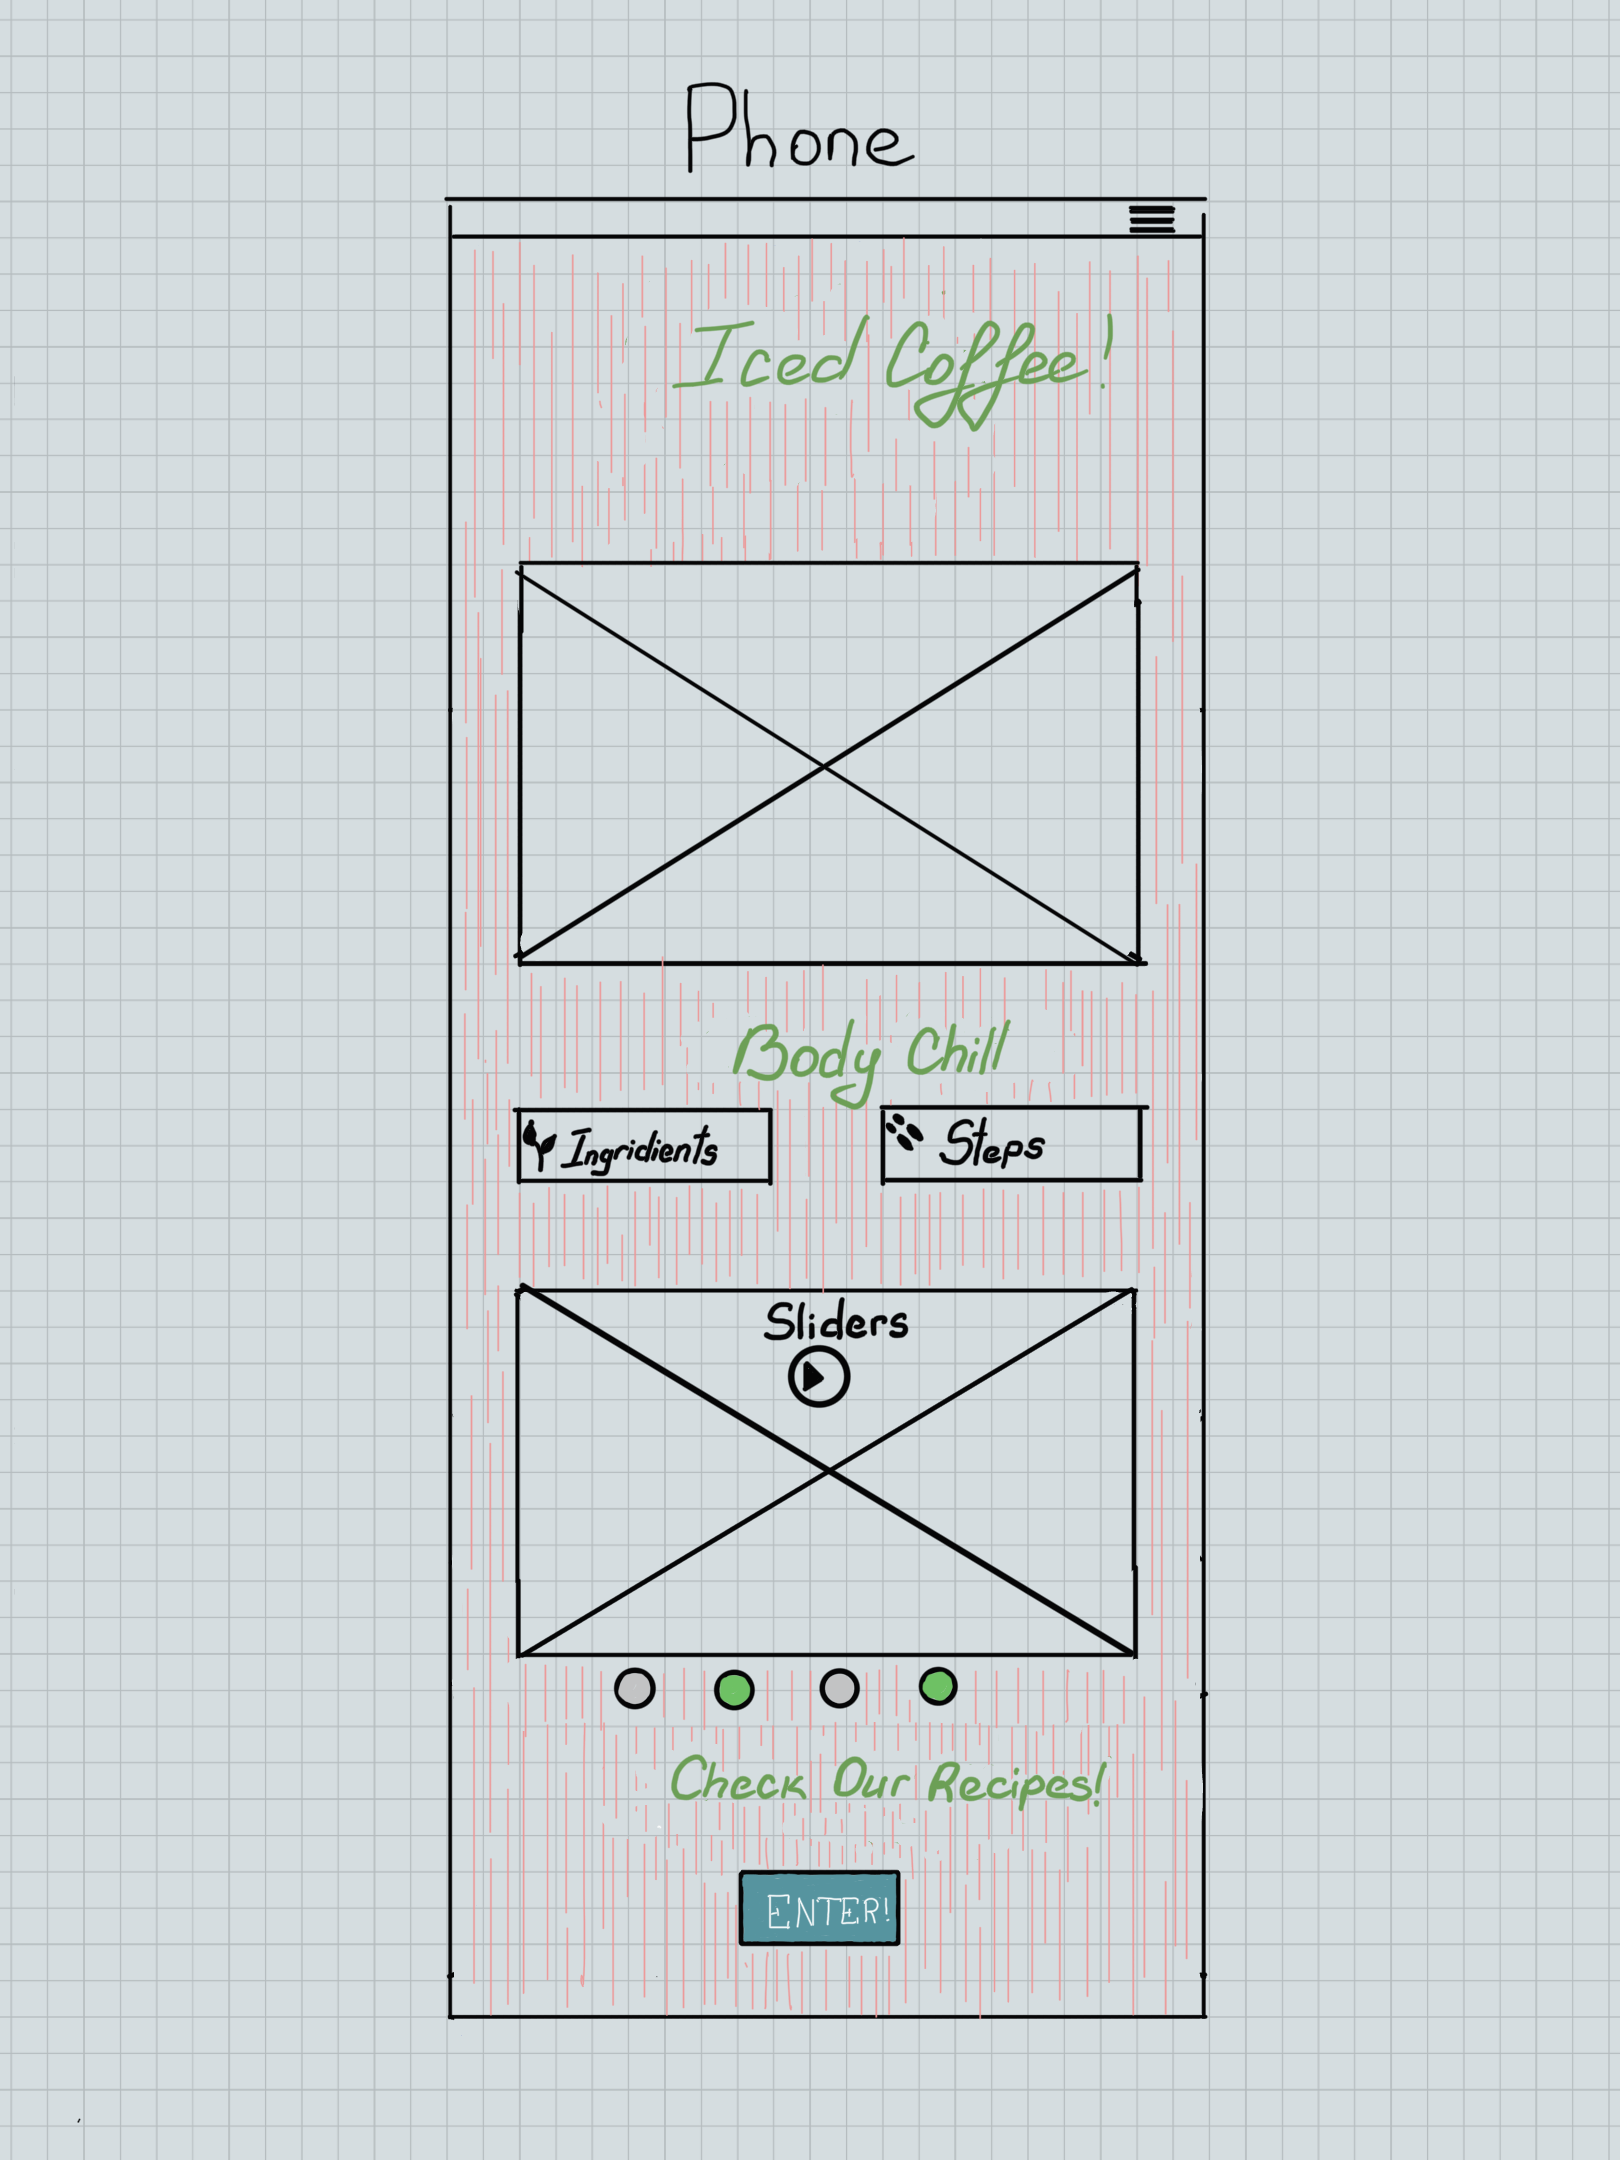 Phone
Iced Coffee!
Body Chill
Ingridients
Steps
Sliders
Check Our Recipes!
ENTER!